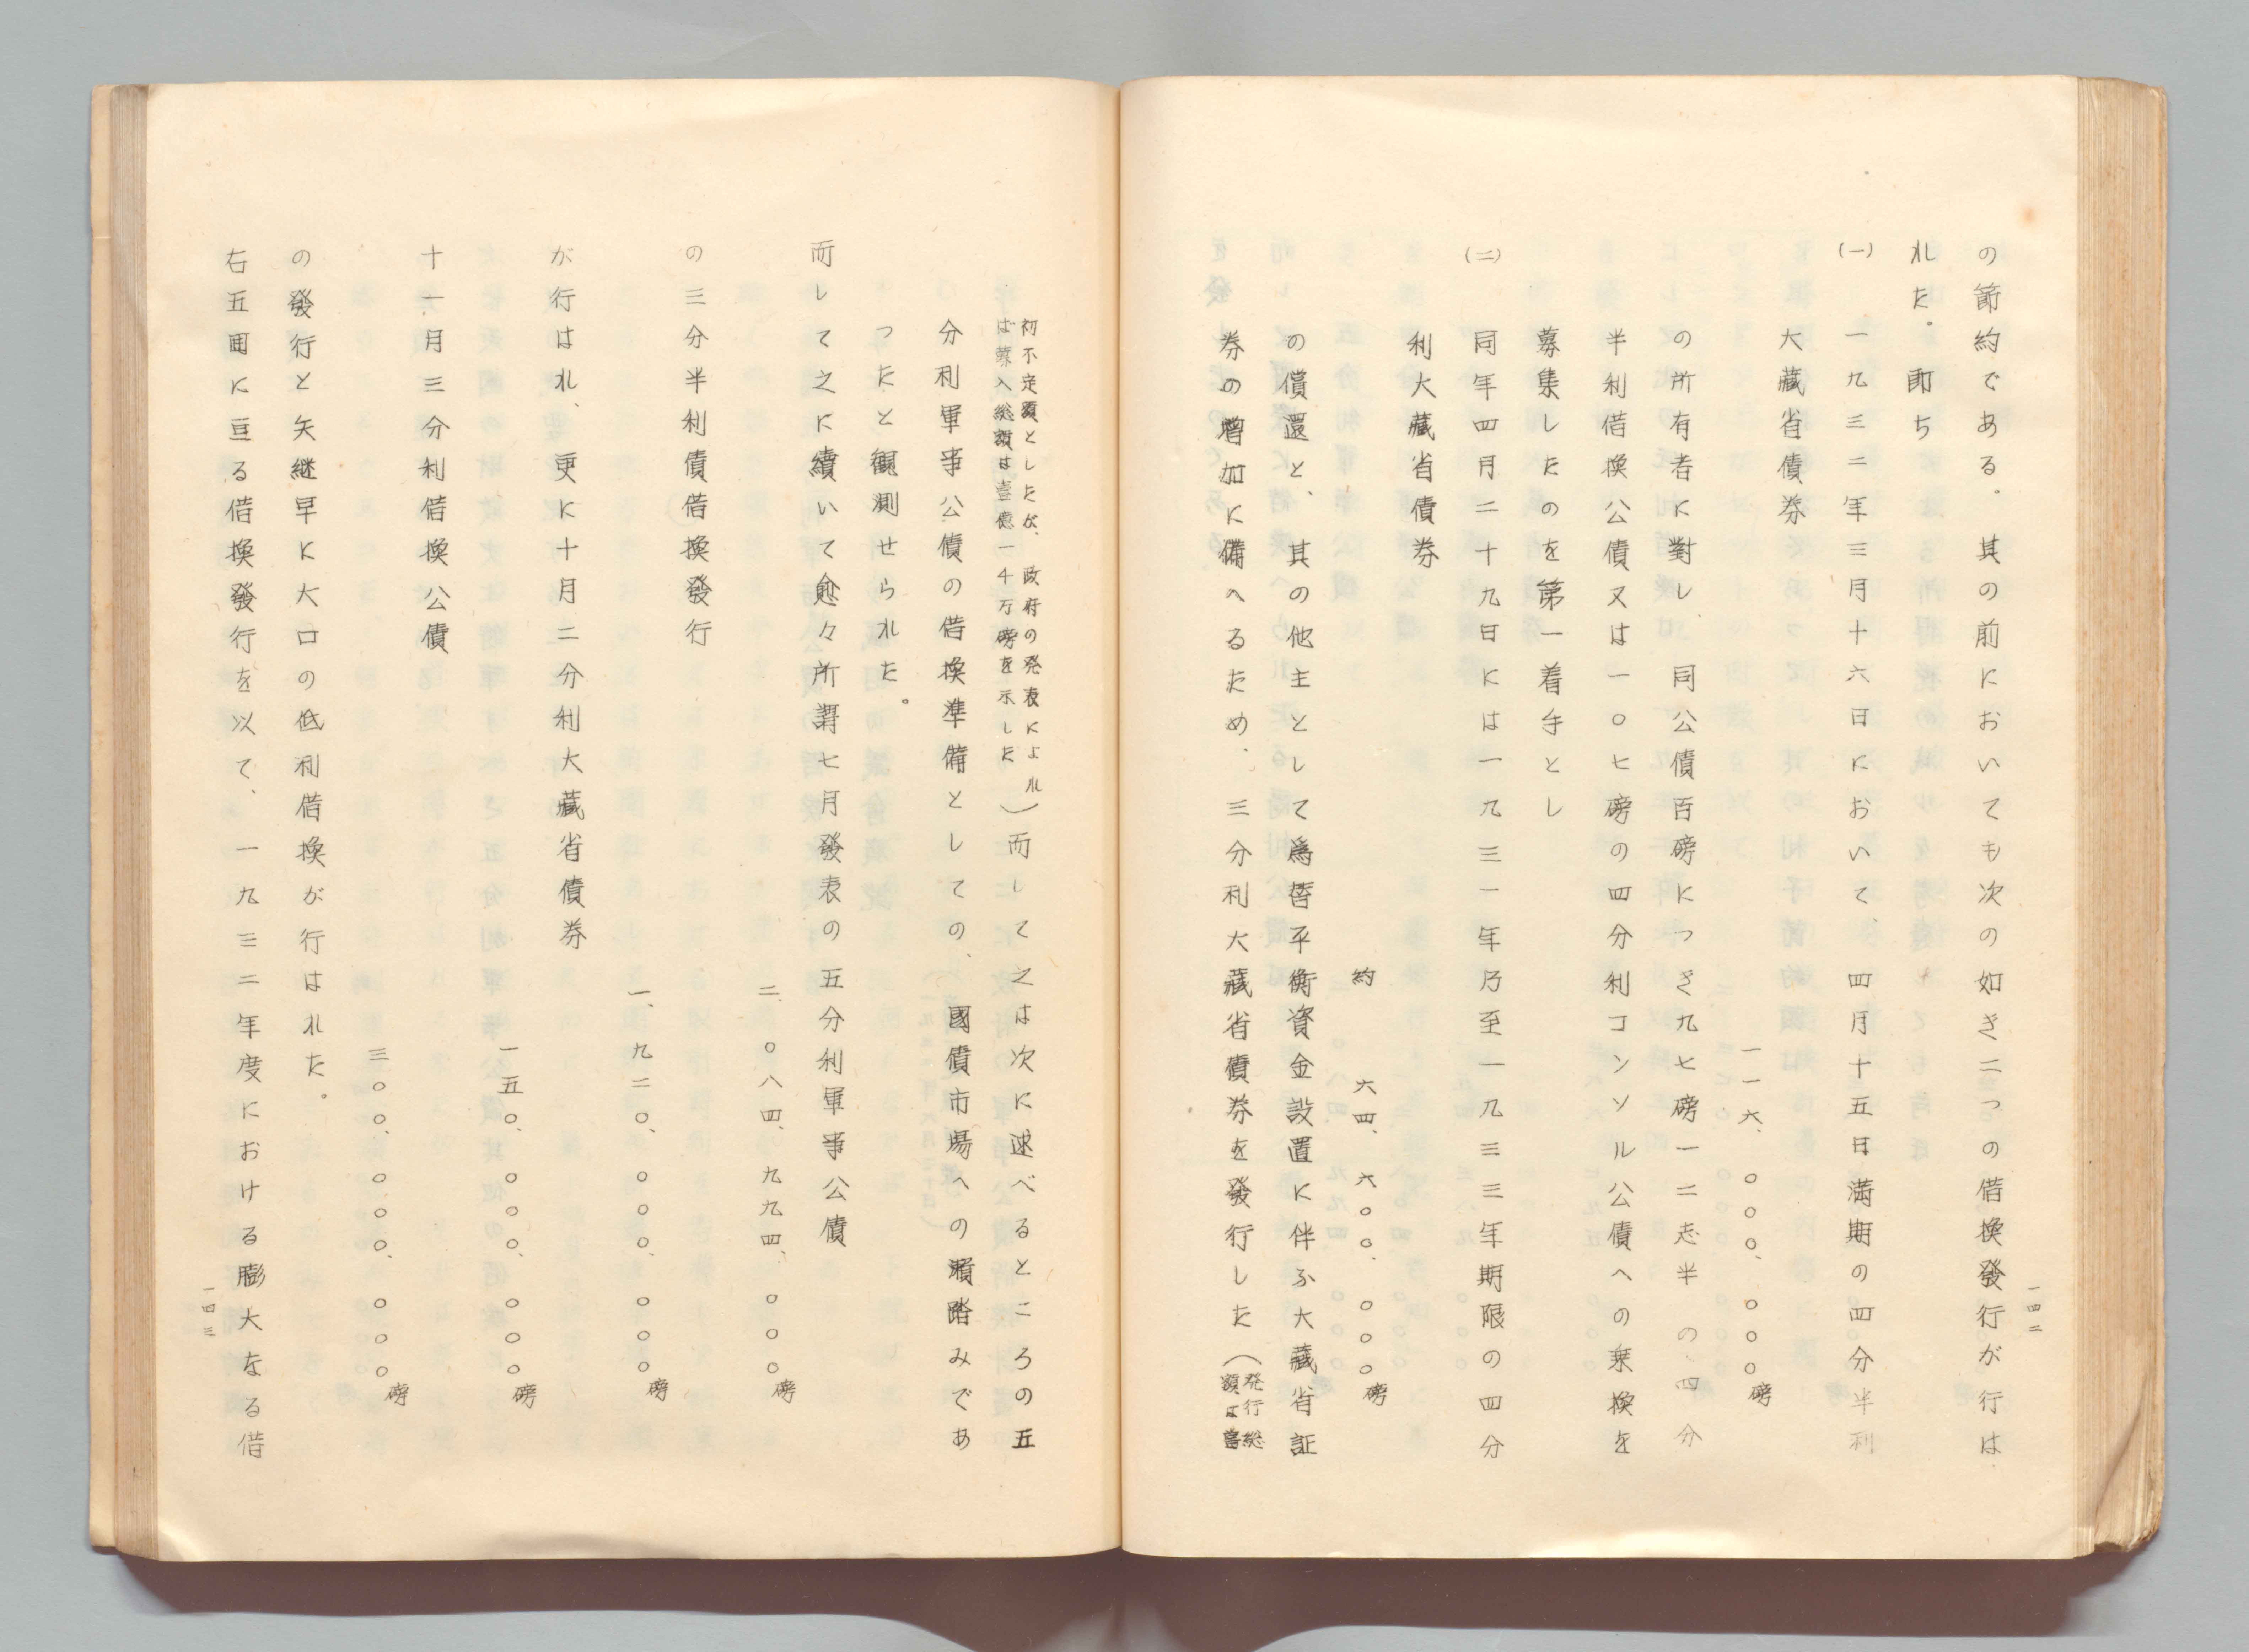 の節約である。其の前においても次の如き二つの借換發行が行は
れた。即ち
(一) 一九三二年三月十六日において、四月十五日満期の四分半利
大藏省債券
一一六、〇〇〇、〇〇〇磅
の所有者に對し、同公債百磅につき九七磅一二志半の四分
半利借換公債又は一〇七磅の四分利コンソル公債への乗換を
募集したのを第一着手とし
(二) 同年四月二十九日には一九三一年乃至一九三三年期限の四分
利大藏省債券
約 六四、六〇〇、〇〇〇磅
の償還と、其の他主として爲替平衡資金設置に伴ふ大藏省証
券の増加に備へるため、三分利大藏省債券を發行した(発行総
額は當
一四二
初不定額としたが、政府の発表によれ
ば募入総額は壹億一千万磅を示した)而して之は次に述べるところの五
分利軍事公債の借換準備としての、國債市場への瀬踏みであ
つたと観測せられた。
而して之に續いて愈々所謂七月發表の五分利軍事公債
二、〇八四、九九四、〇〇〇磅
の三分半利債借換發行
一、九二〇、〇〇〇、〇〇〇磅
が行はれ、更に十月二分利大藏省債券
一五〇、〇〇〇、〇〇〇磅
十一月三分利借換公債
三〇〇、〇〇〇、〇〇〇磅
の發行と矢継早に大口の低利借換が行はれた。
右五囬に亘る借換發行を以て、一九三二年度における膨大なる借
一四三